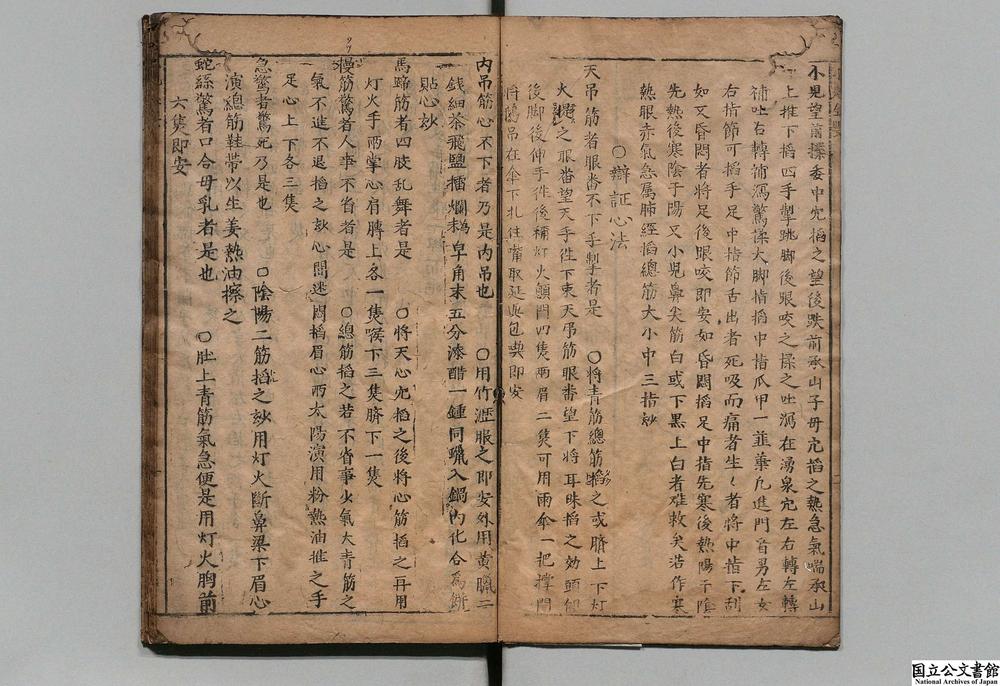 小児望前揉委中穴掐之望後跌前承山子母穴掐之熱急氣喘承山
上推下掐四手掣跳脚後跟咬之揉之吐瀉在湧泉穴左右轉左轉
補吐右轉補瀉驚揉大脚指掐中指爪甲一韮華凡進門看男左女
右指節可掐手足中指節舌出者死吸而痛者生〻者將中指下刮
如又昏悶者將足後跟咬即安如昏悶掐足中指先寒後熱陽干陰
先熱後寒陰干陽又小児鼻尖筋白或下黒上白者难救矣浩作寒
熱眼赤氣急属肺經掐總筋大小中三指妙
○辯証心法
天吊筋者眼畨不下手掣者是 ○將青筋總筋掐之或臍上下灯
火之眼畨望天手徃下束天吊筋眼畨望下將耳珠掐之効頭仰
後脚後伸手徃後補灯火顖門四隻兩眉二隻可用雨傘一把撑開
將鵝吊在傘下扎住嘴取延與包喫即安
内吊筋心不下者乃是内吊也 ○用竹瀝服之即安外用黄臘二
錢細茶飛鹽擂爛為末皁角末五分湊醋一鍾同臘入鍋内化合為餅
貼心妙
馬蹄筋者四肢乱舞者是 ○將天心穴掐之後將心筋掐之再用
灯火手兩掌心肩膊上各一隻喉下三隻臍下一隻
慢筋驚者人事不省者是 ○總筋掐之若不省事少氣大青筋之
氣不進不退掐之妙心間迷悶掐眉心兩太陽演用粉熱油推之手
足心上下各三隻
急驚者驚死乃是也 ○陰陽二筋掐之妙用灯火斷鼻梁下眉心
演總筋鞋帯以生姜熱油擦之
蛇絲驚者口合母乳者是也 ○肚上青筋氣急便是用灯火胸前
六隻即安
97
国立公文書館
National Archives of Japan